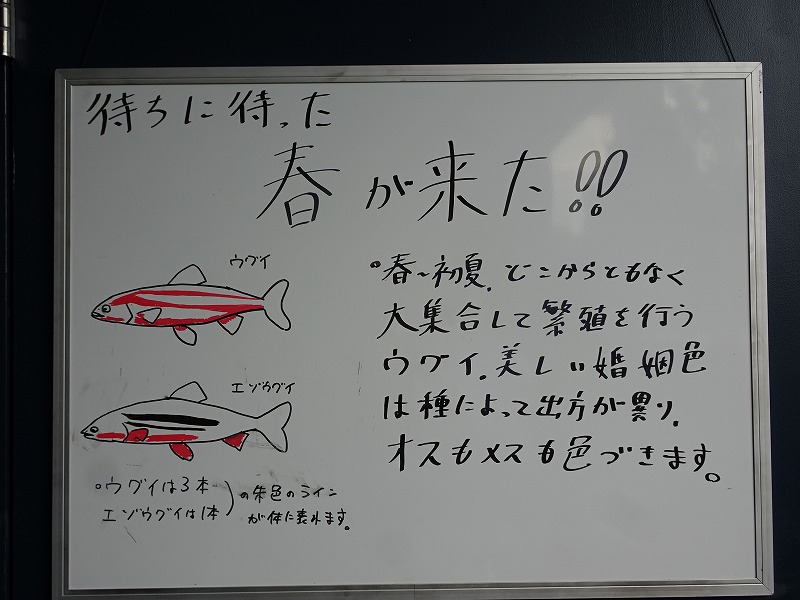 待ちに待った
春が来た!!
ウグイ
エゾウグイ
・ウグイは3本
エゾウグイは1本
)の朱色のライン
が体に表れます。
・春~初夏、どこからともなく
大集合して繁殖を行う
ウグイ。美しい婚姻色
は種によって出方が異り、
オスもメスも色づきます。